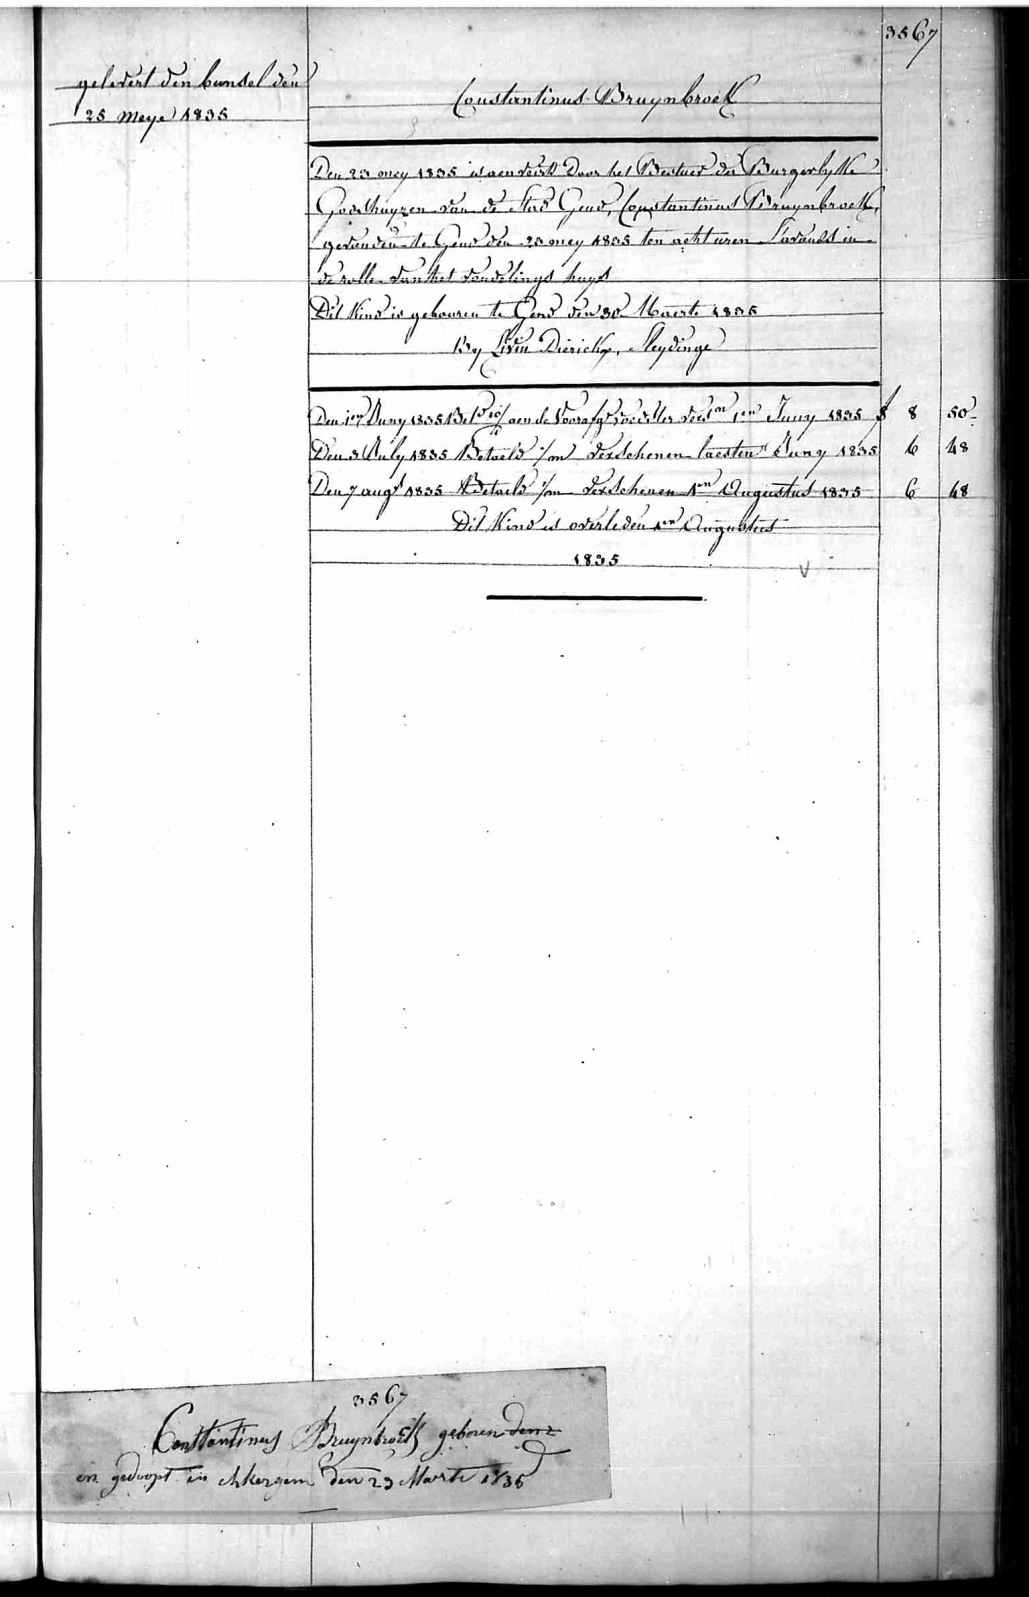 3567
gelevert den bunsel den
25 Meye 1835
Constantinus Bruynbroek
Den 23 mey 1835 is aenveird Door het Bestuer der Burgerlyke
Godshuyzen van de Stad Gend, Constantinus Bruynbroek,
gevonden te Gend den 23 mey 1835 ten acht uren s'avonds in
de rolle van het vondelings huys
Dit Kind is gebooren te Gend den 30 Maerte 1835
By Livin Dierickx, Sleydinge
Den 1en Juny 1835 Bet aen de Voorafg voedster voor 1en Juny 1835 f 8 50
Den 3 July 1835 Betaeld 1/m verschenen laesten Juny 1835 6 48
Den 7 augt 1835 Betaeld 1/m verschenen 1en Augustus 1835 6 48
Dit Kind is overleden 1en Augustus
1835
3567
Constantinus Bruynbroek geboren den
en gedoopt in Akkergem den 23 Marte 1835